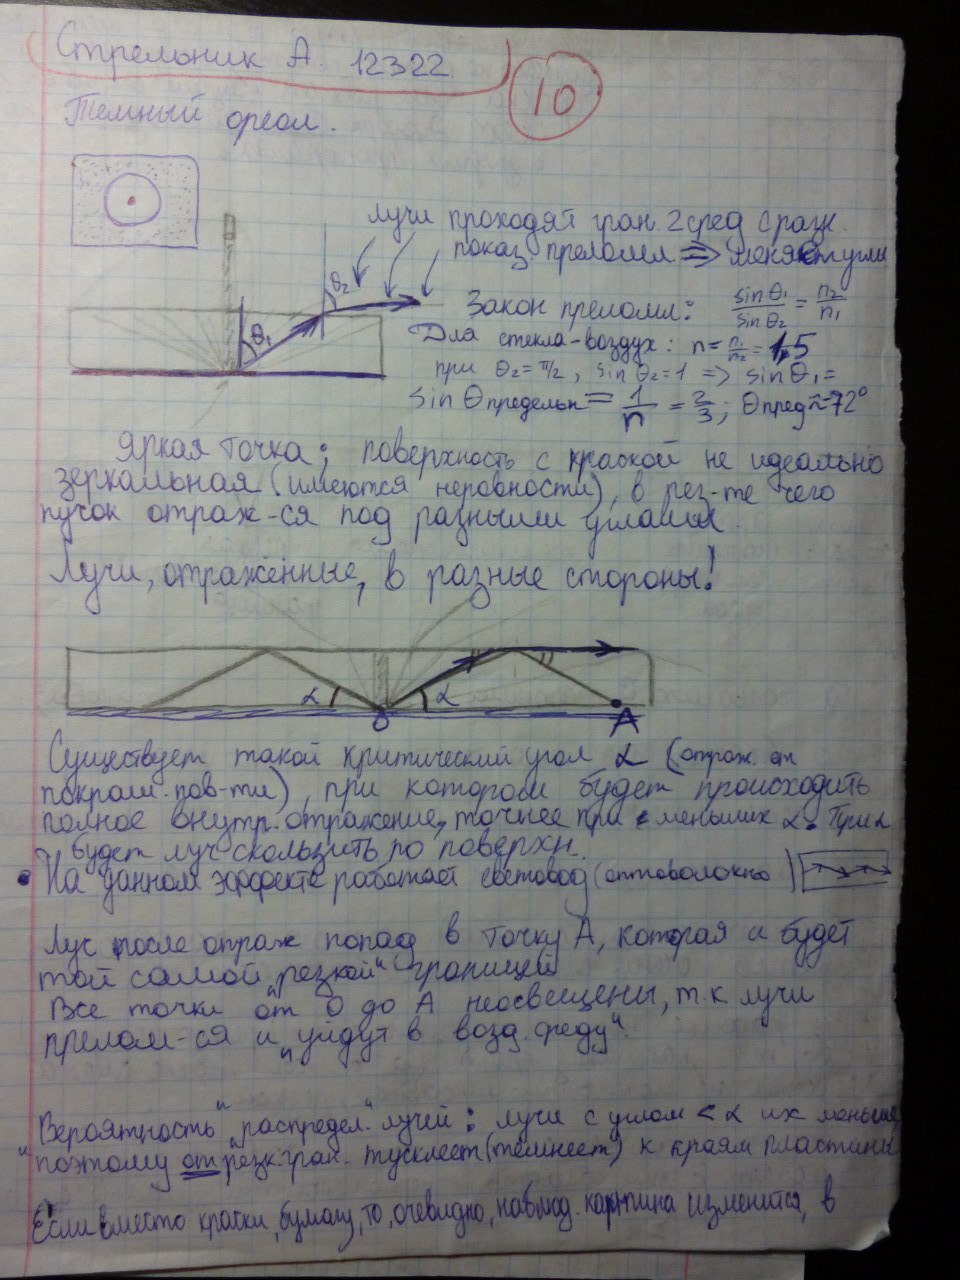 Стрельник А. 12322
10
Темный ореол.
лучи проходят гран. 2 сред с разн.
показ. преломл => меняют углы
θ₂
θ₁
Закон преломл: sinθ₁/sinθ₂ = n₂/n₁
Для стекла-воздух: n = n₁/n₂ = 1,5
при θ₂ = π/2, sin θ₂ = 1 => sin θ₁ =
sin θпредельн = 1/n = 2/3; θпред ~ 72°
Яркая точка: поверхность с краской не идеально
зеркальная (имеются неровности), в рез-те чего
пучок отраж-ся под разными углами
Лучи, отражённые, в разные стороны!
α α
O A
Существует такой критический угол α (отраж. от
покраш. пов-ти), при котором будет происходить
полное внутр. отражение, точнее при меньших α. При α
будет луч скользить по поверхн.
На данном эффекте работает световод (оптоволокно)
Луч после отраж попад в точку А, которая и будет
той самой "резкой" границей
Все точки от О до А неосвещены, т.к лучи
прелом-ся и "уйдут в возд. среду".
Вероятность "распредел." лучей: лучи с углом < α их меньше,
поэтому от резк гран. тускнеет (темнеет) к краям пластины
Если вместо краски, бумагу, то, очевидно, наблюд. картина изменится, в